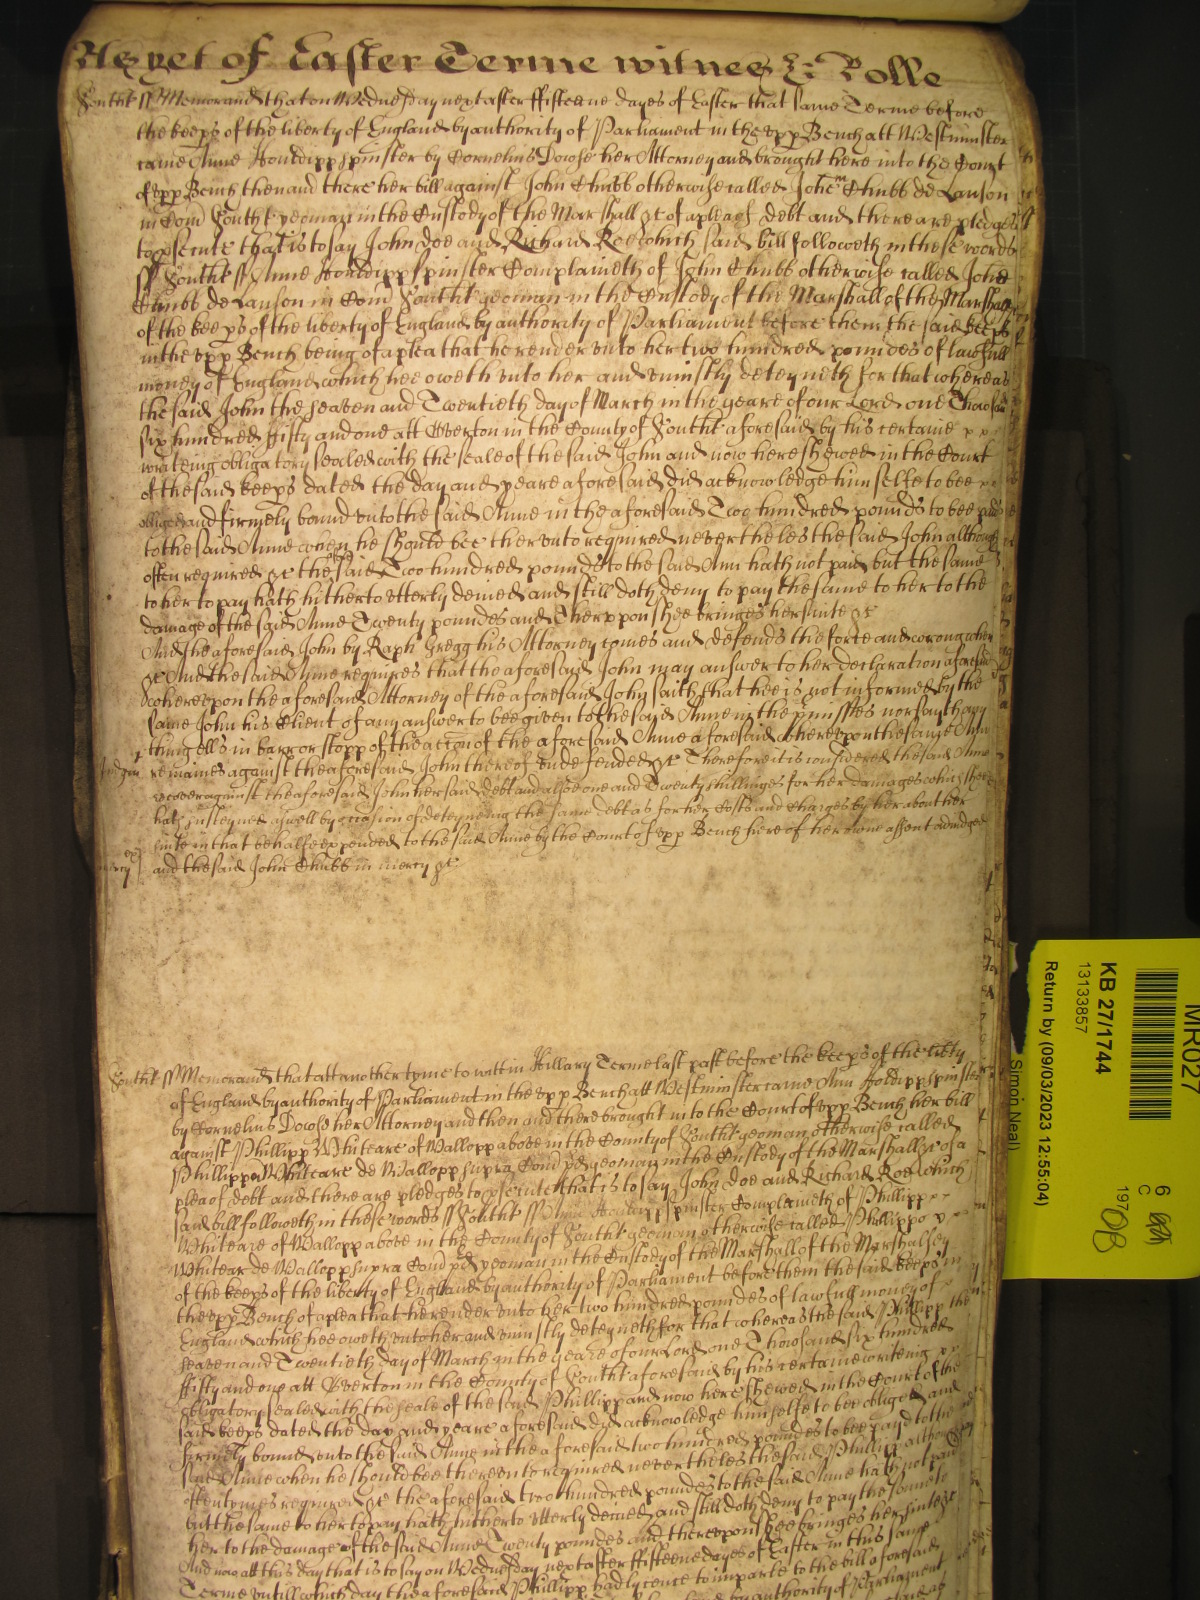 As yet of Easter Terme witnes &c Rolle
Southt ss Memorand that on Wednesday next after fifteene dayes of Easter that same Terme before
the keeps of the liberty of England by authority of Parliament in the upp Bench att Westminster
came Anne Houldipp spinster by Cornelius Dowse her Attorney and brought here into the Court
of upp Bench then and there her bill against John Chubb otherwise called Johem Chubb de Lanson
in Com Southt yeoman in the Custody of the Marshall &c of a plea of debt and there are pledges
to psecute that is to say John Doe and Richard Roe which said bill followeth in these words
ss Southt ss Anne Houldipp spinster Complaineth of John Chubb otherwise called John
Chubb de Lanson in Com Southt yeoman in the Custody of the Marshall of the Marshalsey
of the keeps of the liberty of England by authority of Parliament before them the said keeps
in the upp Bench being of a plea that he render unto her two hundred poundes of lawfull
money of England which hee oweth unto her and uniustly deteyneth for that whereas
the said John the seaven and Twentieth day of March in the yeare of our Lord one Thousand
six hundred fifty and one att Overton in the County of Southt aforesaid by his certaine
writeing obligatory sealed with the seale of the said John and now here shewed in the Court
of the said keeps dated the day and yeare aforesaid did acknowledge himselfe to bee
obliged and firmely bound unto the said Anne in the aforesaid Two hundred pounds to bee paid
to the said Anne when he should bee thereunto required neverthelesse the said John although
often required &c the said Two hundred pounds to the said Ann hath not paid but the same
to her to pay hath hitherto utterly denied and still doth deny to pay the same to her to the
damage of the said Anne Twenty poundes and Thereupon shee bringes her suite &c
And the aforesaid John by Raph Gregg his Attorney comes and defends the force and wrong when
&c And the said Anne requires that the aforesaid John may answer to her declaration aforesaid
whereupon the aforesaid Attorney of the aforesaid John saith that hee is not informed by the
same John his Client of any answer to bee given to the said Anne in the pmisses nor saith any
thing ells in barr or stopp of the accon of the aforesaid Anne aforesaid whereupon the same Anne
remaines against the aforesaid John thereof undefended &c Therefore it is considered the said Anne
recover against the aforesaid John her said debt and alsoe one and Twenty shillinges for her damages which shee
hath susteyned aswell by occasion of deteyneing the same debt as for her Costs and Charges by her about her
suite in that behalfe expended to the said Anne by the Court of upp Bench here of her owne assent adiudged
and the said John Chubb in mercy &c
Southt ss Memorand that att another tyme to witt in Hillary Terme last past before the keeps of the libty
of England by authority of Parliament in the upp Bench att Westminster came Ann Holdipp spinster
by Cornelius Dowse her Attorney and then and there brought into the Court of upp Bench her bill
against Phillipp Whiteare of Wallopp above in the County of Southt yeoman otherwise called
Phillippu Whiteare de Wallopp supra Com pd yeoman in the Custody of the Marshall &c of a
plea of debt and there are pledges to psecute that is to say John Doe and Richard Roe which
said bill followeth in these words ss Southt ss Ann Houldipp spinster Complaineth of Phillipp
Whiteare of Wallopp above in the County of Southt yeoman otherwise called Phillippu
Whitear de Wallopp supra Com pd yeoman in the Custody of the Marshall of the Marshalsey
of the keeps of the liberty of England by authority of Parliament before them the said keeps in
the upp Bench of a plea that he render unto her two hundred poundes of lawfull money of
England which hee oweth unto her and uniustly deteyneth for that whereas the said Phillipp the
seaven and Twentieth day of March in the yeare of our Lord one Thousand six hundred
fifty and one att Overton in the County of Southt aforesaid by his certaine writeing
obligatory sealed with the seale of the said Phillipp and now here shewed in the Court of the
said keeps dated the day and yeare aforesaid did acknowledge himselfe to bee obliged and
firmely bound unto the said Anne in the aforesaid two hundred poundes to bee payd to the
said Anne when he should bee thereunto required neverthelesse the said Phillipp although
oftentymes required &c the aforesaid two hundred poundes to the said Anne hath not paid
but the same to her to pay hath hitherto utterly denied and still doth deny to pay the same to
her to the damage of the said Anne Twenty poundes and thereupon shee bringes her suite &c
And now att this day that is to say on Wednesday next after fifteene dayes of Easter in this same
Terme untill which day the aforesaid Phillipp had lycence to imparle to the bill aforesaid
by authority of Parliament
MR027
KB 27/1744
13133857
Return by (09/03/2023 12:55:04)
Simon Neal)
6
C
197